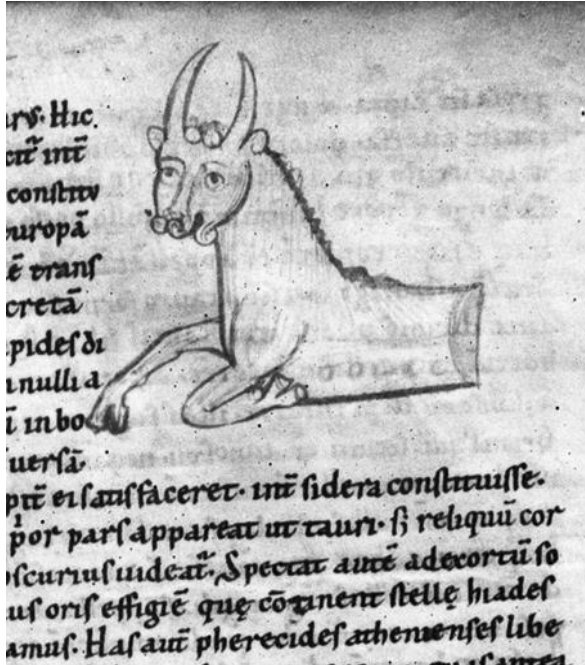 Hic
cit᷑ int̄
constitu
europā
ē trans
cretā
pides di
nulli a
in bo
uersā.
ei satisfaceret. int̄ sidera constituisse.
por pars appareat ut tauri. sꝫ reliquū cor
oscurius uideat᷑. Spectat autē ad exortū so
us oris effigiē quę cōtinent stellę hiades
amus. Has aut̄ pherecides athenienses libe